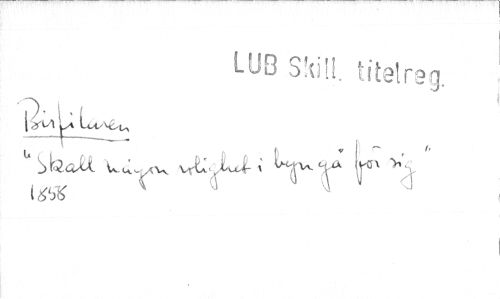 LUB Skill. titelreg.
Birfilaren
"Skall någon rolighet i byn gå för sig"
1858